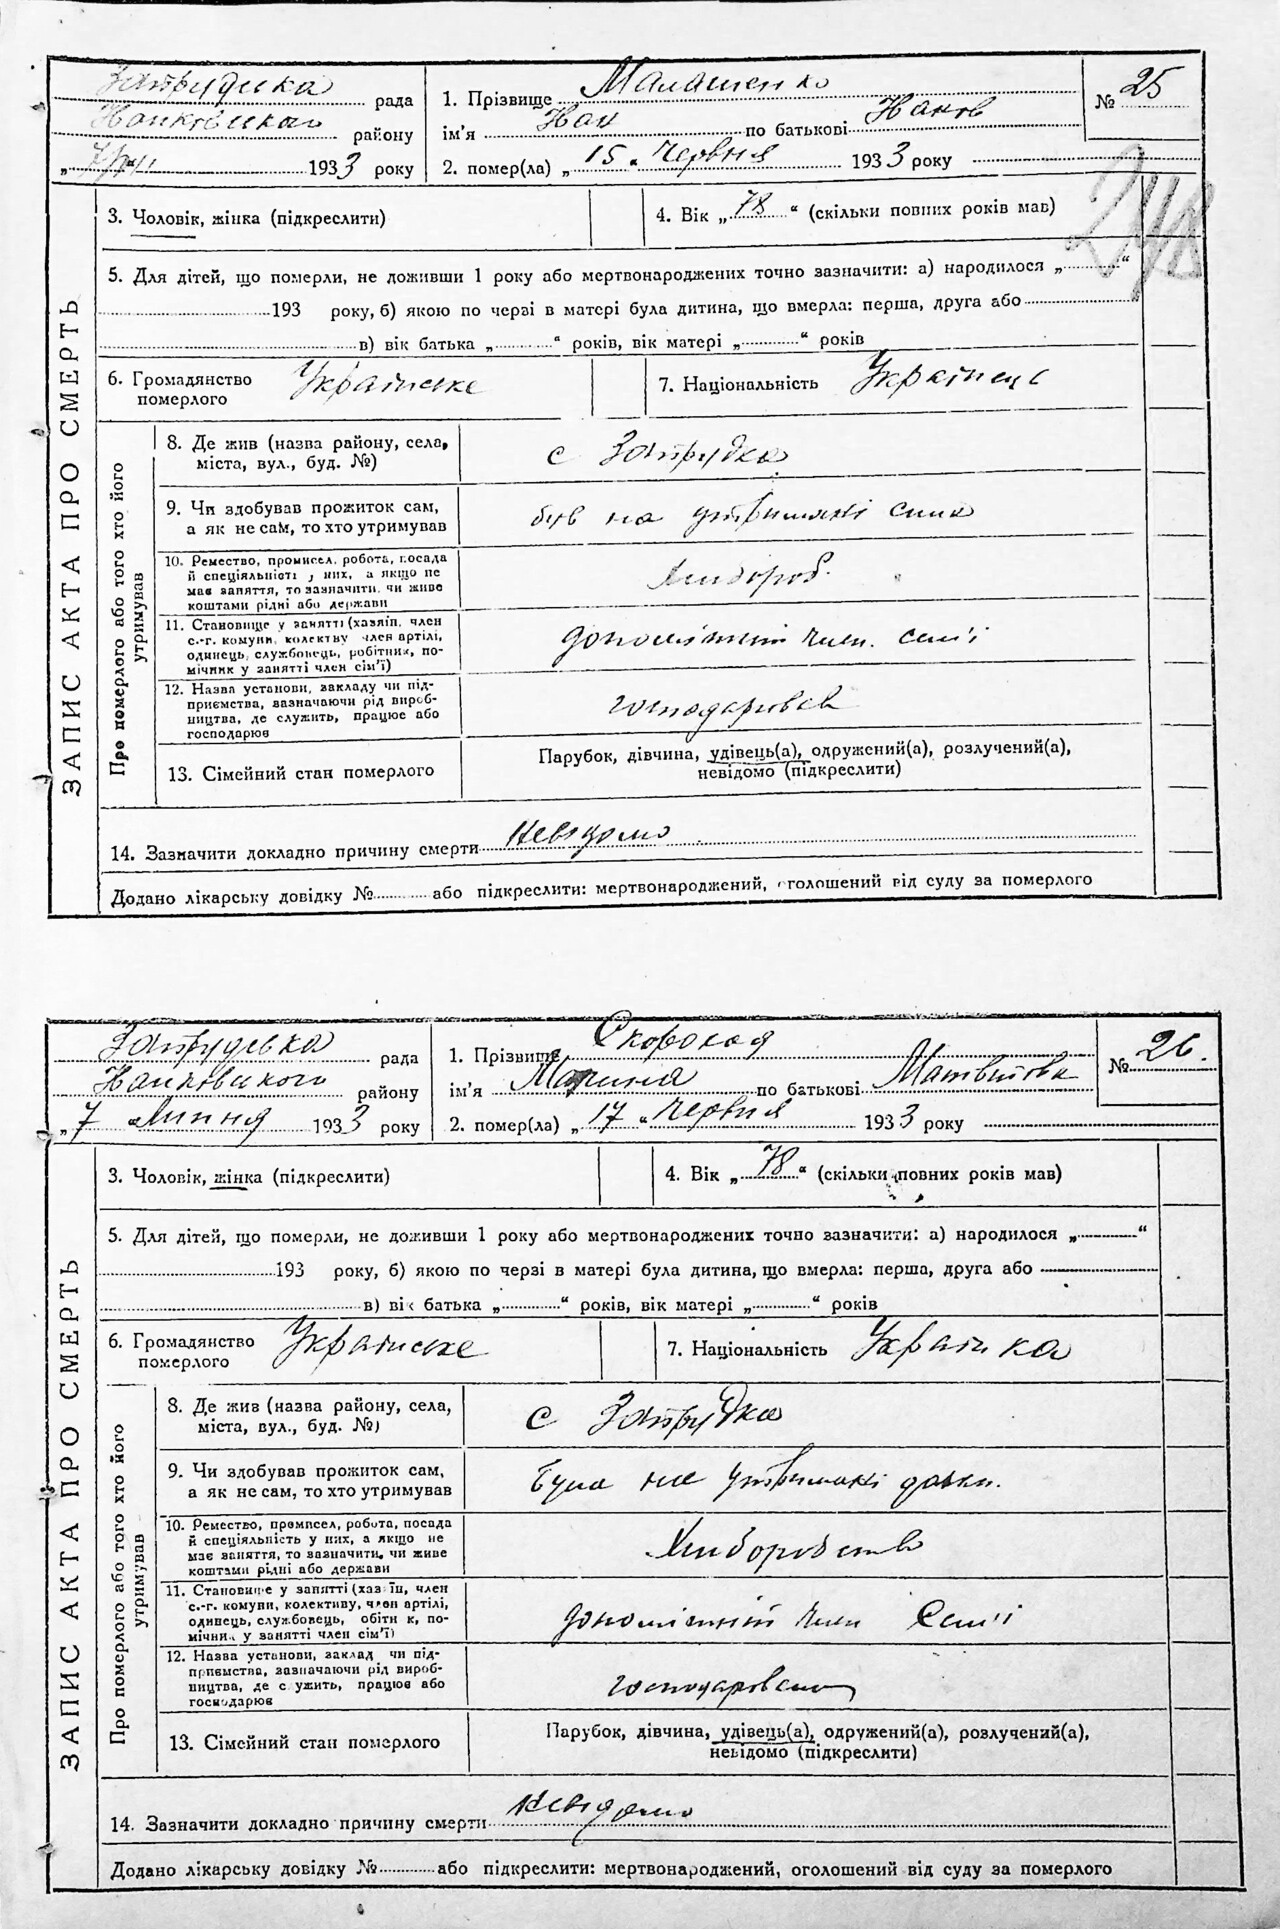 Затрудська рада
1. Прізвище Малашенко
№ 25
району
ім'я Іван по батькові Іванов
„7/VII 1933 року
2. помер(ла) „15„ Червня 1933 року
248
ЗАПИС АКТА ПРО СМЕРТЬ
3. Чоловік, жінка (підкреслити)
4. Вік „78“ (скільки повних років мав)
5. Для дітей, що померли, не доживши 1 року або мертвонароджених точно зазначити: а) народилося „ “
193 року, б) якою по черзі в матері була дитина, що вмерла: перша, друга або
в) вік батька „ “ років, вік матері „ “ років
6. Громадянство
померлого
Українське
7. Національність Українець
Про померлого або того хто його
утримував
8. Де жив (назва району, села,
міста, вул., буд. №)
с Затрудка
9. Чи здобував прожиток сам,
а як не сам, то хто утримував
був на утриманні сина
10. Ремество, промисел, робота, посада
й спеціяльність у них, а якщо не
має заняття, то зазначити чи живе
коштами рідні або держави
Хлібороб
11. Становище у занятті (хазяїн, член
с.-г. комуни, колективу член артілі,
одинець, службовець, робітник, по-
мічник у занятті член сім'ї)
допоміжний член. сем'ї
12. Назва установи, закладу чи під-
приємства, зазначаючи рід вироб-
ництва, де служить, працює або
господарює
господарював
13. Сімейний стан померлого
Парубок, дівчина, удівець(а), одружений(а), розлучений(а),
невідомо (підкреслити)
14. Зазначити докладно причину смерти невідомо
Додано лікарську довідку № або підкреслити: мертвонароджений, оголошений від суду за померлого
Затрудська рада
1. Прізвище Скорокад
№ 26.
району
ім'я Марина по батькові Матвіївна
„7 „Липня 1933 року
2. помер(ла) „17„ Червня 1933 року
ЗАПИС АКТА ПРО СМЕРТЬ
3. Чоловік, жінка (підкреслити)
4. Вік „78“ (скільки повних років мав)
5. Для дітей, що померли, не доживши 1 року або мертвонароджених точно зазначити: а) народилося „ “
193 року, б) якою по черзі в матері була дитина, що вмерла: перша, друга або
в) вік батька „ “ років, вік матері „ “ років
6. Громадянство
померлого
Українське
7. Національність Українка
Про померлого або того хто його
утримував
8. Де жив (назва району, села,
міста, вул., буд. №)
с Затрудка
9. Чи здобував прожиток сам,
а як не сам, то хто утримував
Була на утриманні дочки.
10. Ремество, промисел, робота, посада
й спеціяльність у них, а якщо не
має заняття, то зазначити, чи живе
коштами рідні або держави
Хліборобство
11. Становище у занятті (хазяїн, член
с.-г. комуни, колективу, член артілі,
одинець, службовець, робітник, по-
мічник у занятті член сім'ї)
допоміжний член Сем'ї
12. Назва установи, закладу чи під-
приємства, зазначаючи рід вироб-
ництва, де служить, працює або
господарює
13. Сімейний стан померлого
Парубок, дівчина, удівець(а), одружений(а), розлучений(а),
невідомо (підкреслити)
14. Зазначити докладно причину смерти невідомо
Додано лікарську довідку № або підкреслити: мертвонароджений, оголошений від суду за померлого